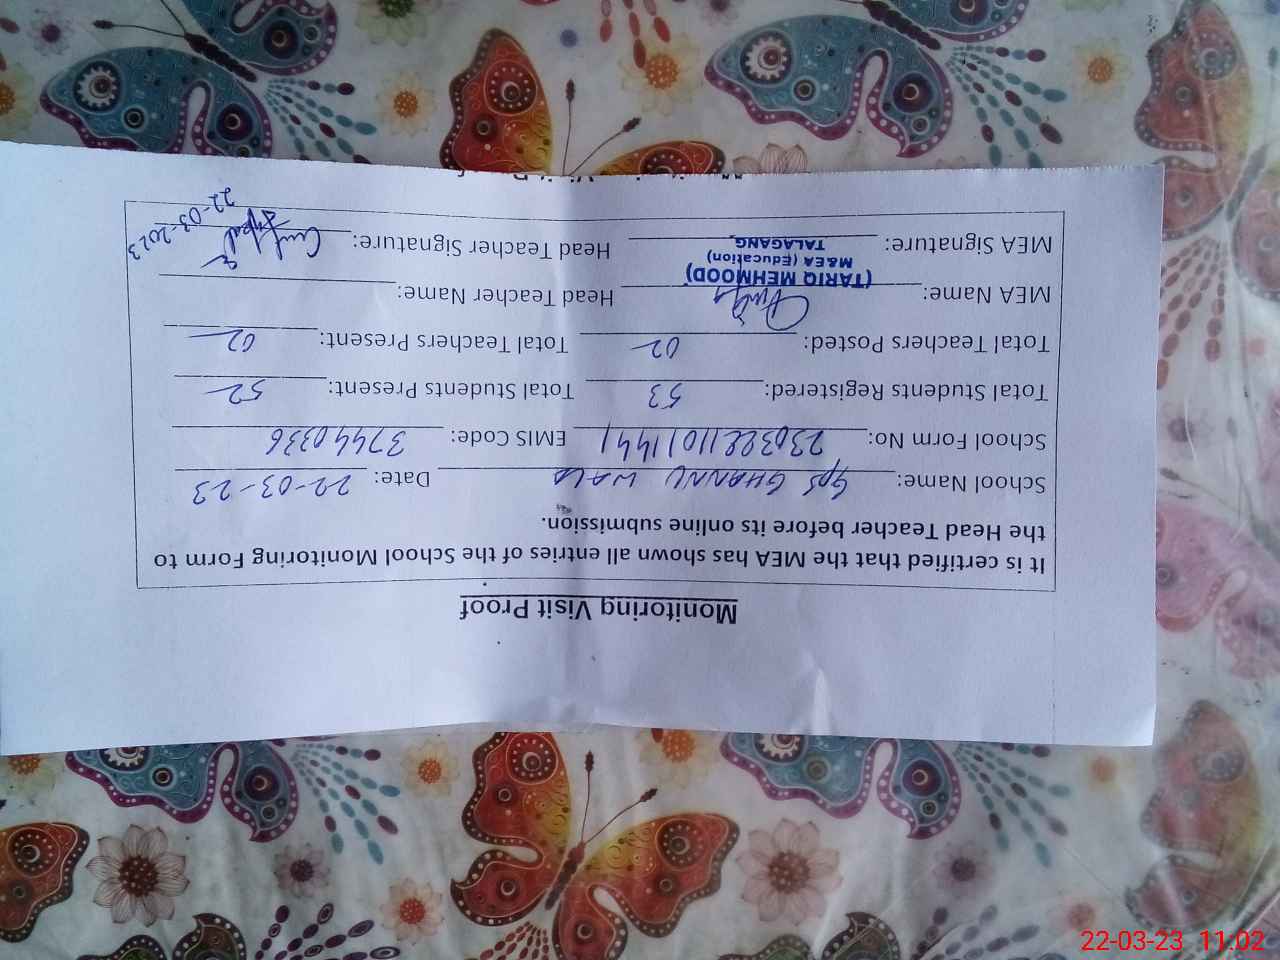 Monitoring Visit Proof
It is certified that the MEA has shown all entries of the School Monitoring Form to
the Head Teacher before its online submission.
School Name: GPS GHANNU WALA Date: 22-03-23
School Form No: EMIS Code: 37440336
Total Students Registered: 53 Total Students Present: 52
Total Teachers Posted: 02 Total Teachers Present: 02
MEA Name: Head Teacher Name:
(TARIQ MEHMOOD)
M&EA (Education)
TALAGANG.
MEA Signature: Head Teacher Signature:
22-03-2023
22-03-23 11.02